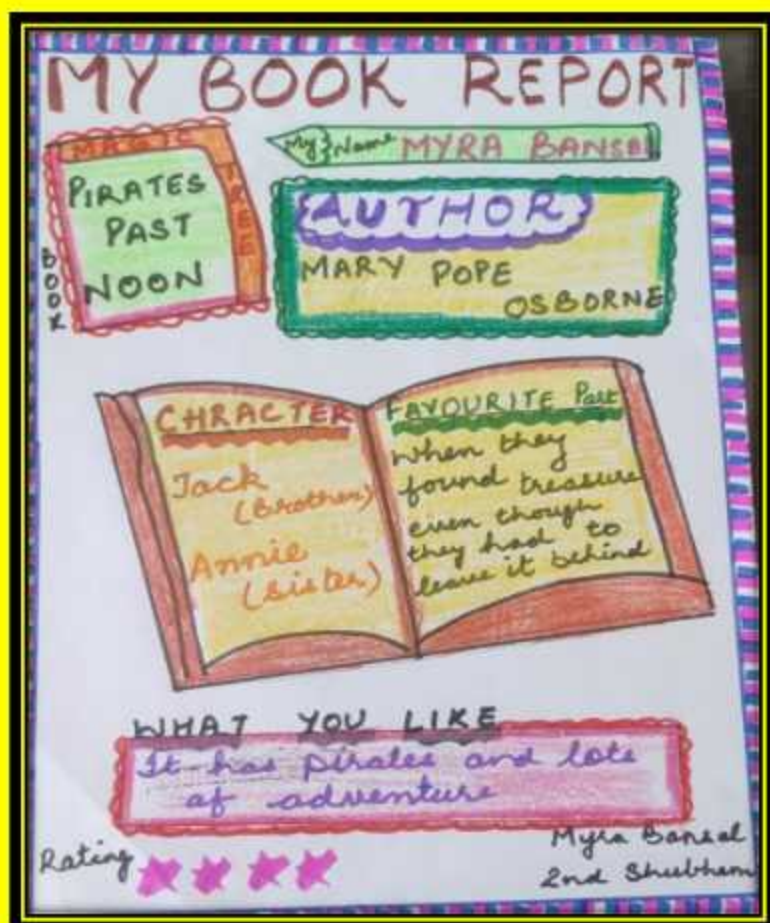 MY BOOK REPORT
MAGIC TREE
PIRATES
PAST
NOON
BOOK
My Name MYRA BANSAL
AUTHOR
MARY POPE
OSBORNE
CHRACTER
Jack
(Brother)
Annie
(Sister)
FAVOURITE Part
When they
found treasure
even though
they had to
leave it behind
WHAT YOU LIKE
It has pirates and lots
of adventure
Rating
Myra Bansal
2nd Shubham